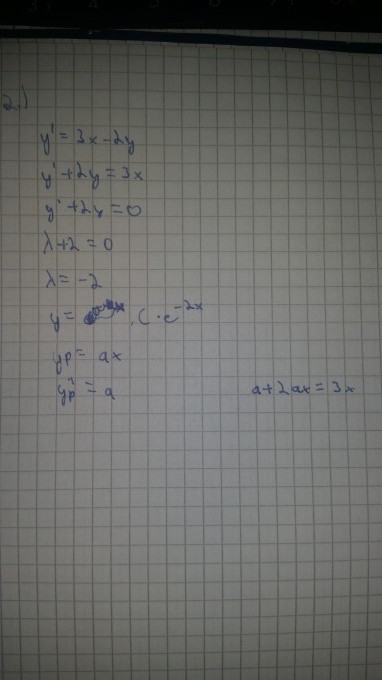 2.)
y' = 3x - 2y
y' + 2y = 3x
y' + 2y = 0
λ + 2 = 0
λ = -2
y = C · e^-2x
yp = ax
yp' = a a + 2ax = 3x